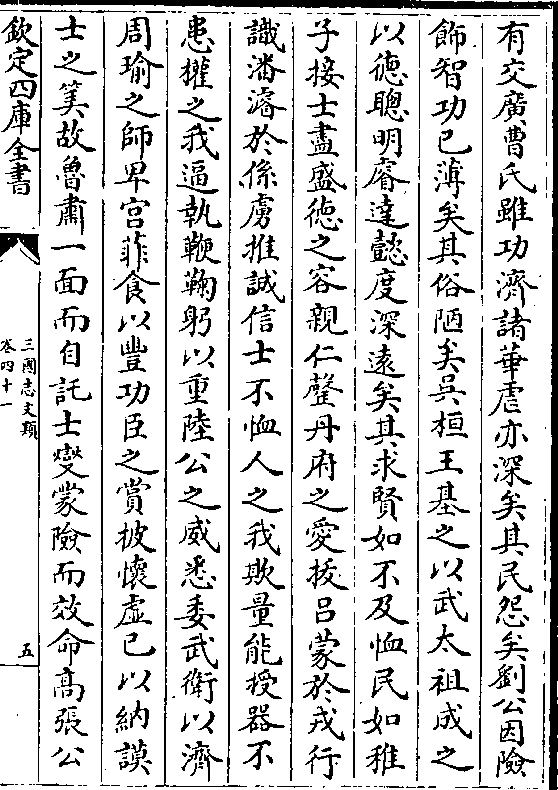 有交廣曹氏雖功濟諸華虐亦深矣其民怨矣劉公因險
飾智功已薄矣其俗陋矣吳桓王基之以武太祖成之
以德聰明睿達懿度深遠矣其求賢如不及恤民如稚
子接士盡盛德之容親仁罄丹府之愛拔吕蒙於戎行
識潘濬於係虜推誠信士不恤人之我欺量能授器不
患權之我逼執鞭鞠躬以重陸公之威悉委武衛以濟
周瑜之師卑宫菲食以豐功臣之賞披懷虛已以納謨
士之筭故魯肅一面而自託士燮蒙險而效命高張公
欽定四庫全書
三國志文類
卷四十一
五